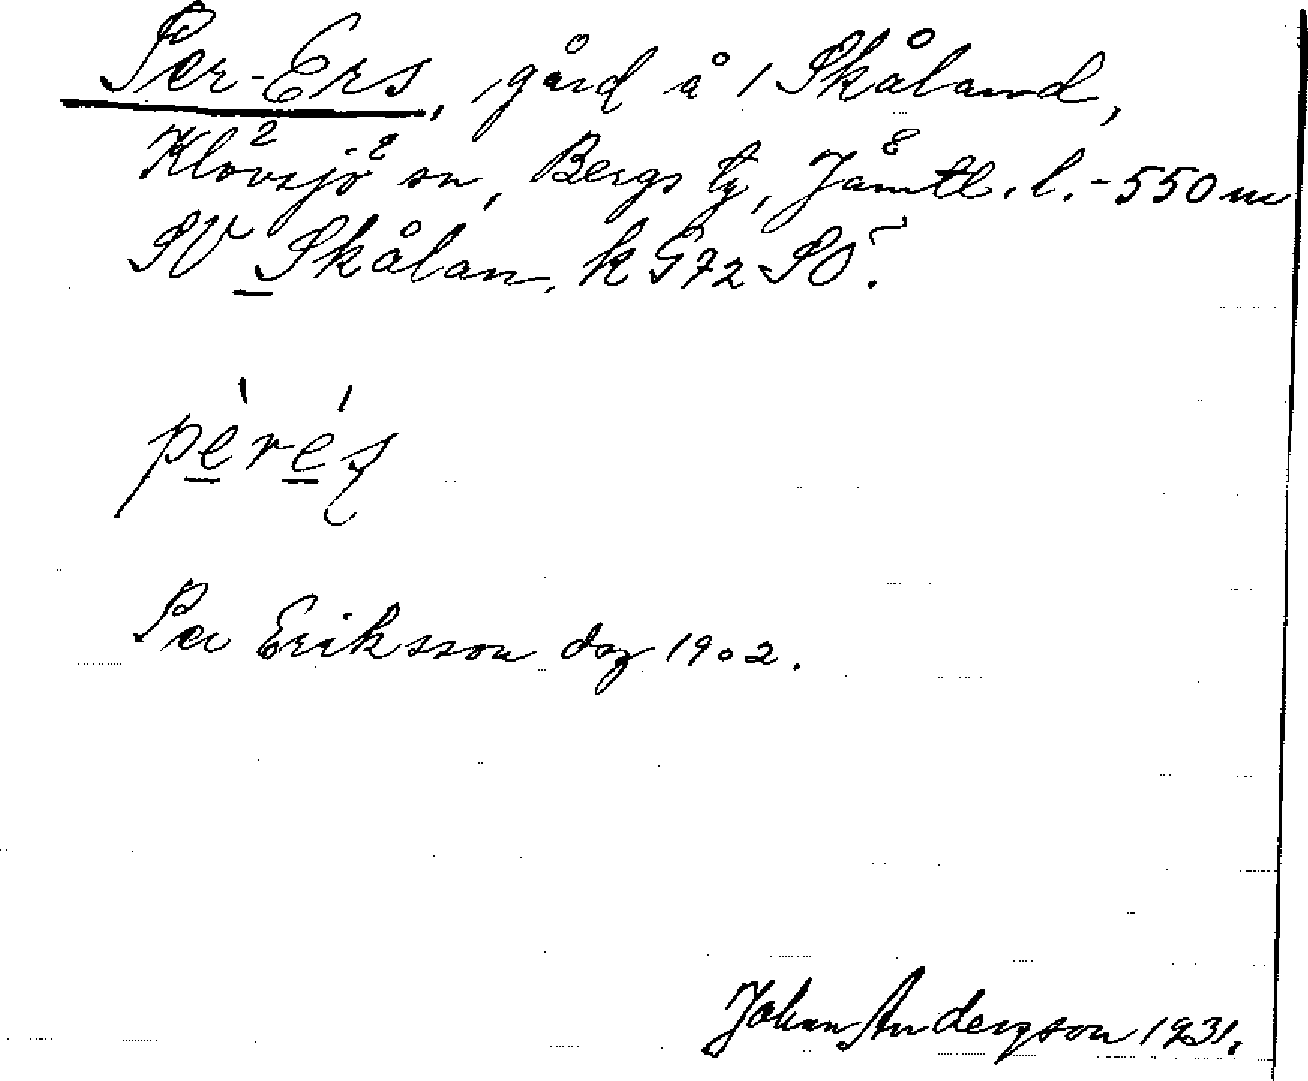 Per-Ers, gård å 1 Skåland,
Klövsjö sn, Bergs tg, Jämtl. l. - 550 m
SV Skålan, k G72 SÖ.
pèrés
Per Eriksson dog 1902.
Johan Anderson 1931.